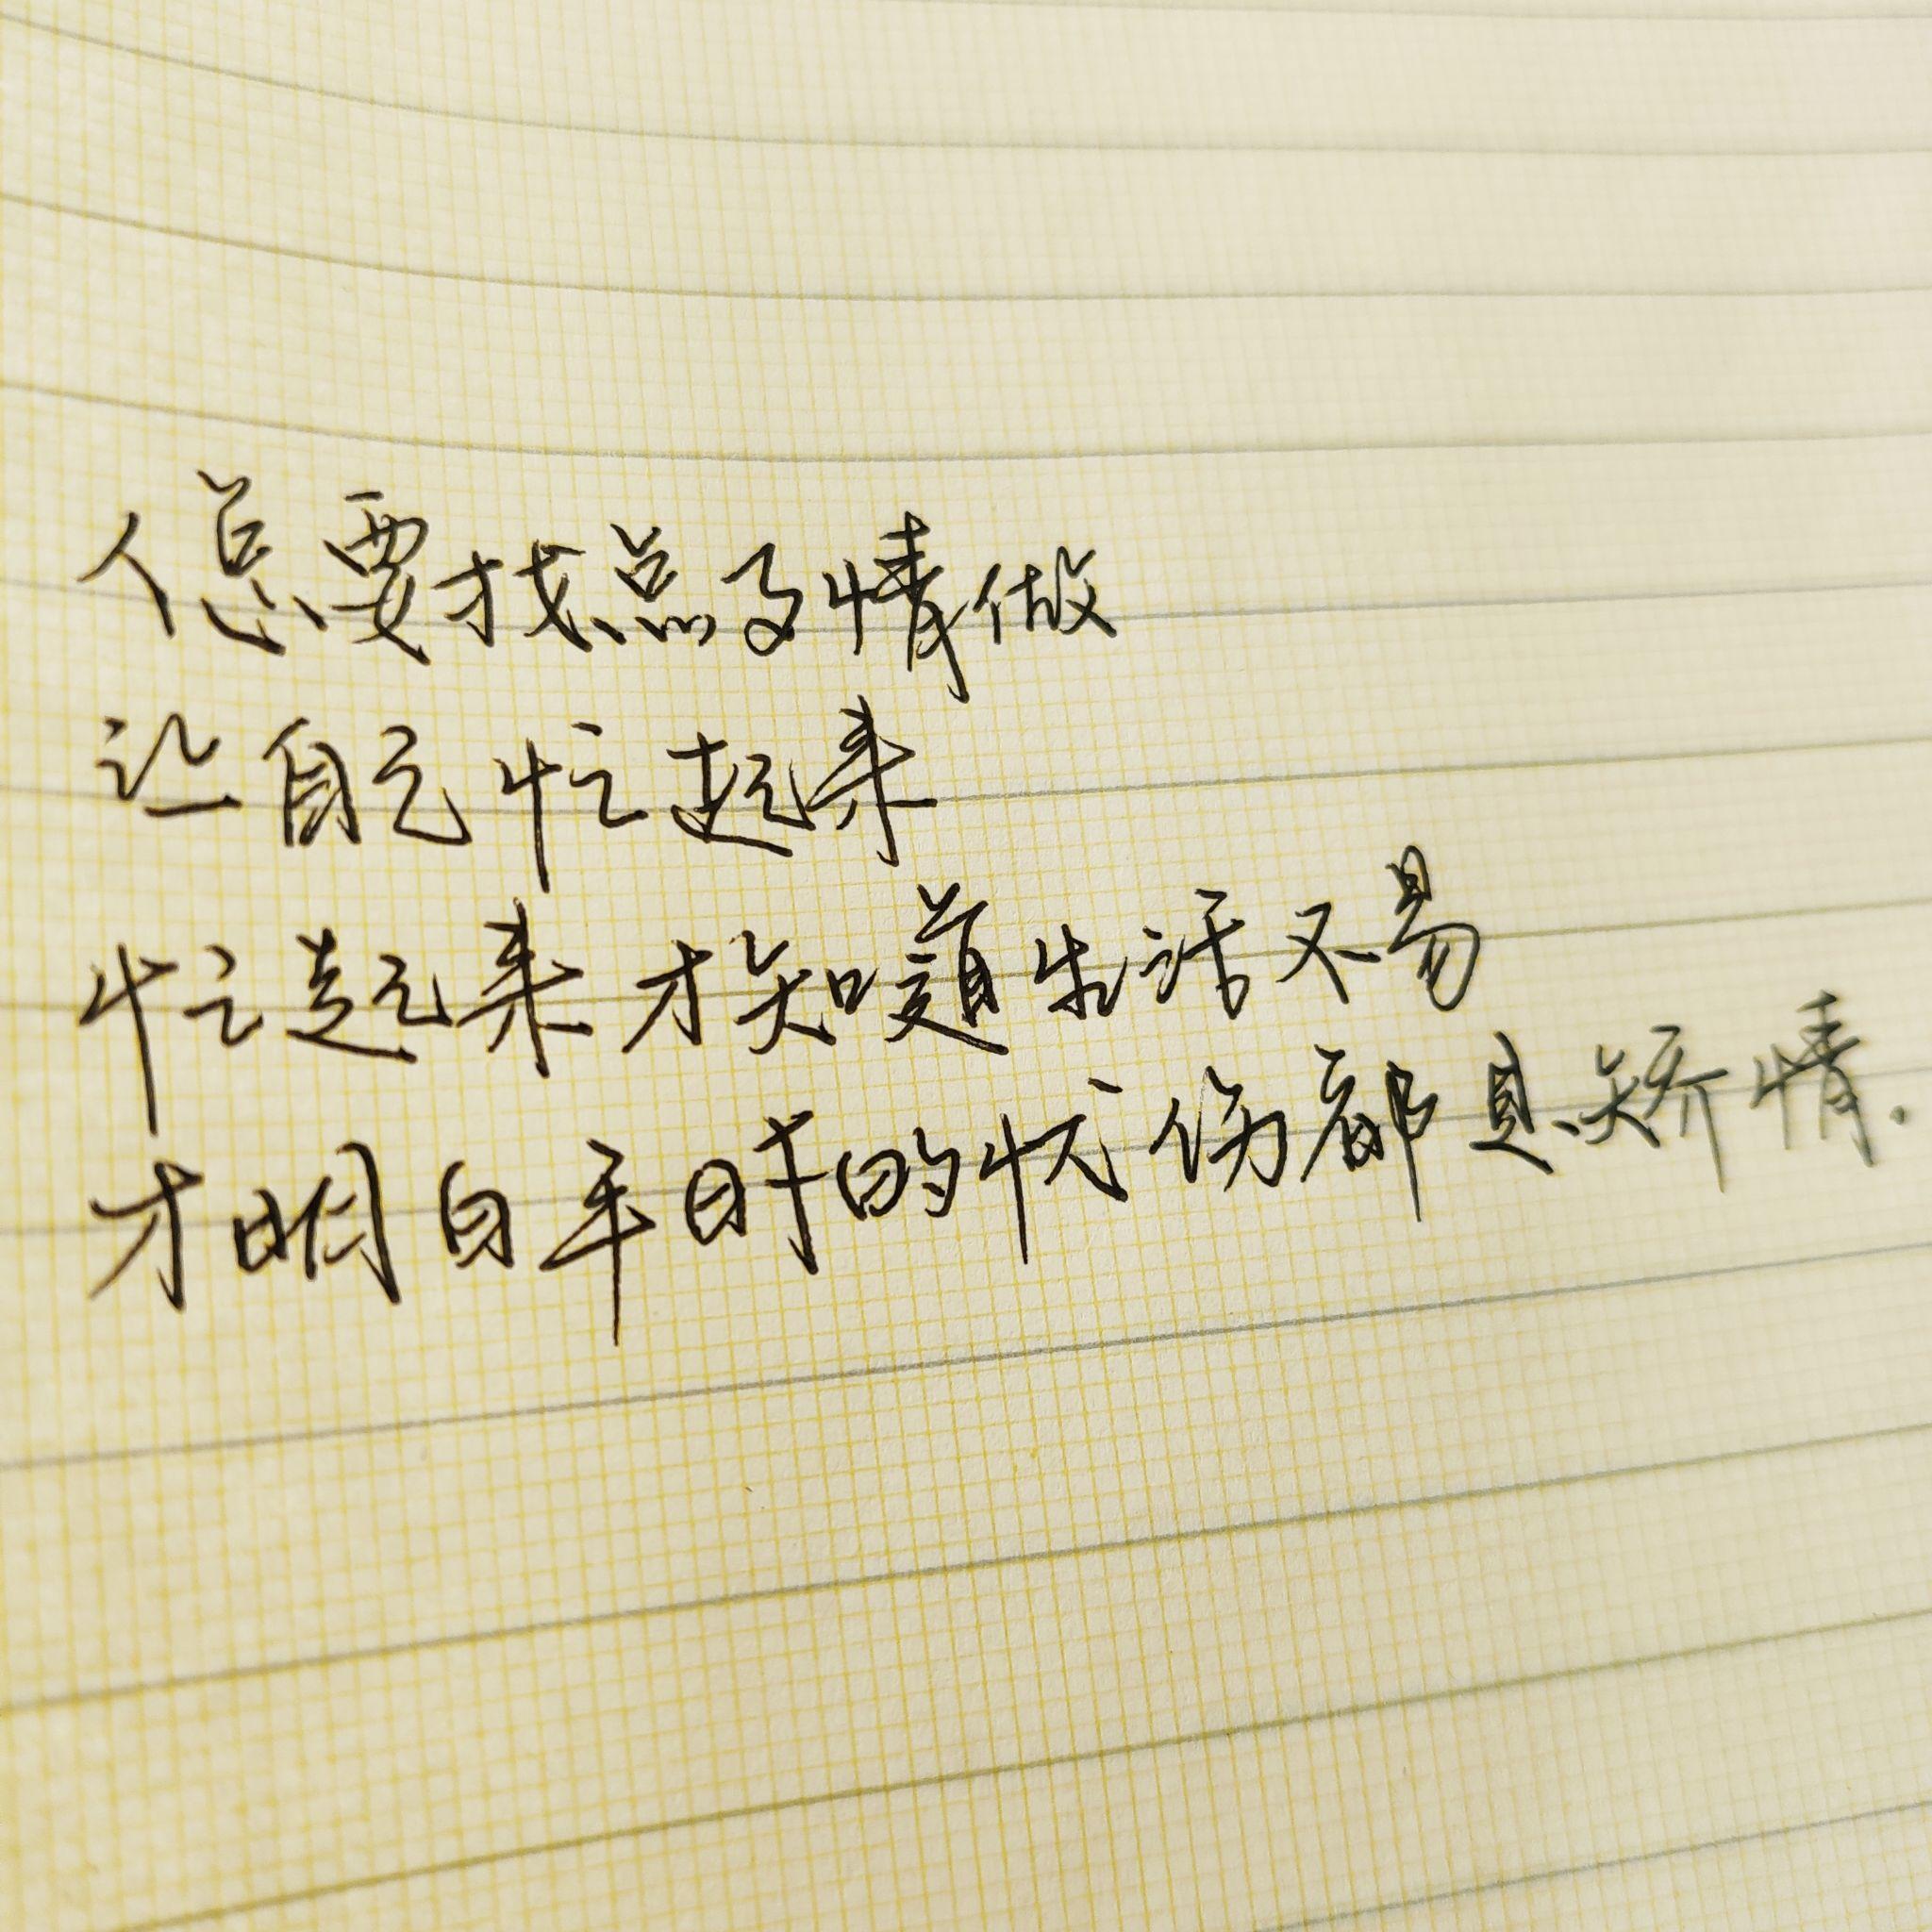 人总要找点事情做
让自己忙起来
忙起来才知道生活不易
才明白平时的忧伤都是矫情.